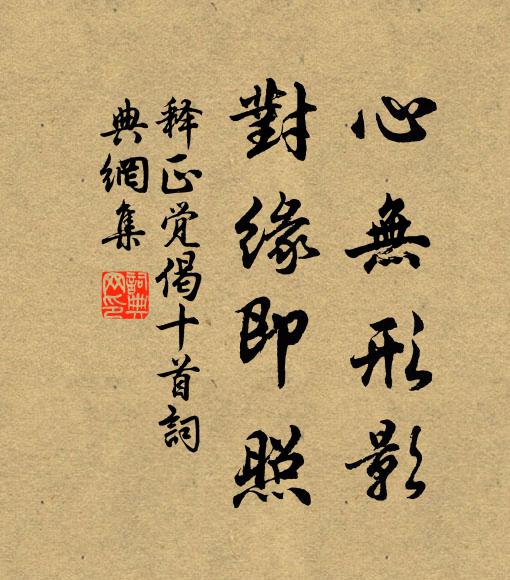 心無形影
對緣即照
释正觉偈十首詞
典網集
詞典网印